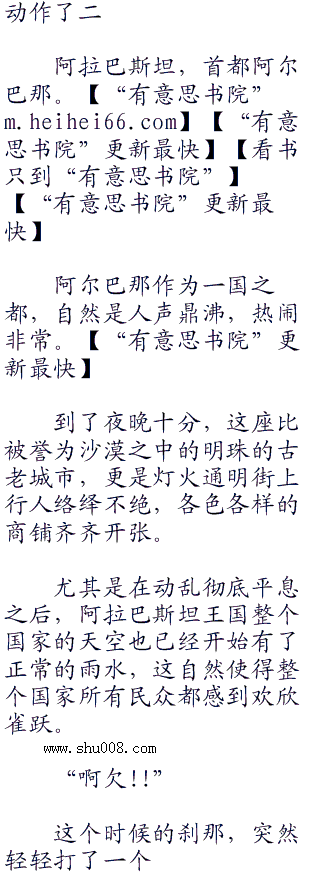 动作了二
阿拉巴斯坦，首都阿尔
巴那。【“有意思书院”
m.heihei66.com】【“有意
思书院”更新最快】【看书
只到“有意思书院”】
【“有意思书院”更新最
快】
阿尔巴那作为一国之
都，自然是人声鼎沸，热闹
非常。【“有意思书院”更
新最快】
到了夜晚十分，这座比
被誉为沙漠之中的明珠的古
老城市，更是灯火通明街上
行人络绎不绝，各色各样的
商铺齐齐开张。
尤其是在动乱彻底平息
之后，阿拉巴斯坦王国整个
国家的天空也已经开始有了
正常的雨水，这自然使得整
个国家所有民众都感到欢欣
雀跃。
www.shu008.com
“啊欠!!”
这个时候的刹那，突然
轻轻打了一个